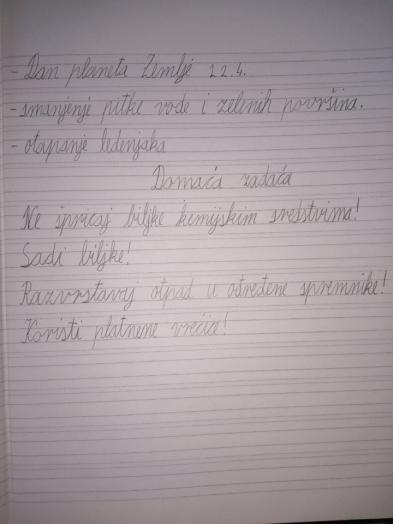 - Dan planeta Zemlje 22.4.
- smanjenje pitke vode i zelenih površina.
- otapanje ledenjaka
Domaća zadaća
Ne špricaj biljke kemijskim sredstvima!
Sadi biljke!
Razvrstavaj otpad u određene spremnike!
Koristi platnene vrećice!